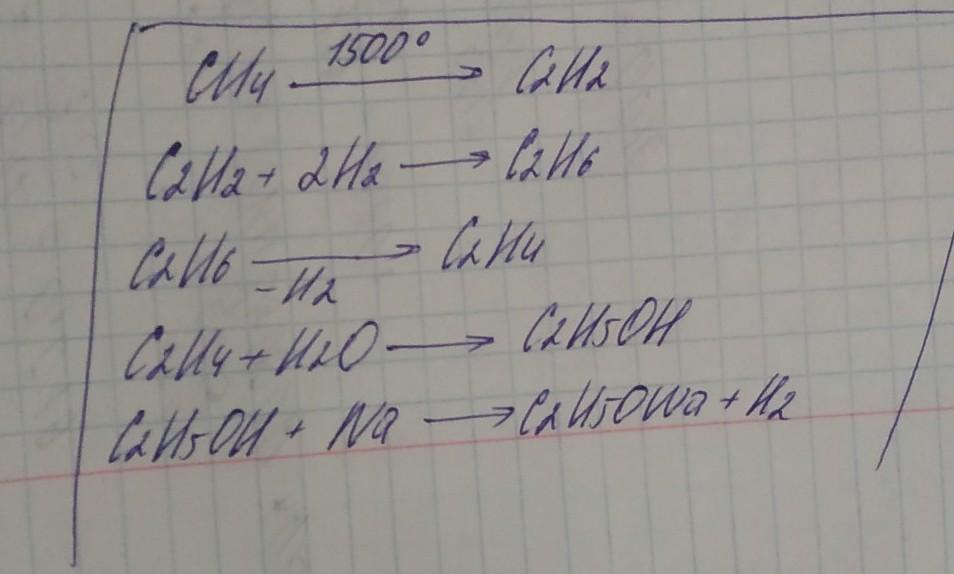 CH4 —1500°→ C2H2
C2H2 + 2H2 → C2H6
C2H6 —-H2→ C2H4
C2H4 + H2O → C2H5OH
C2H5OH + Na → C2H5ONa + H2